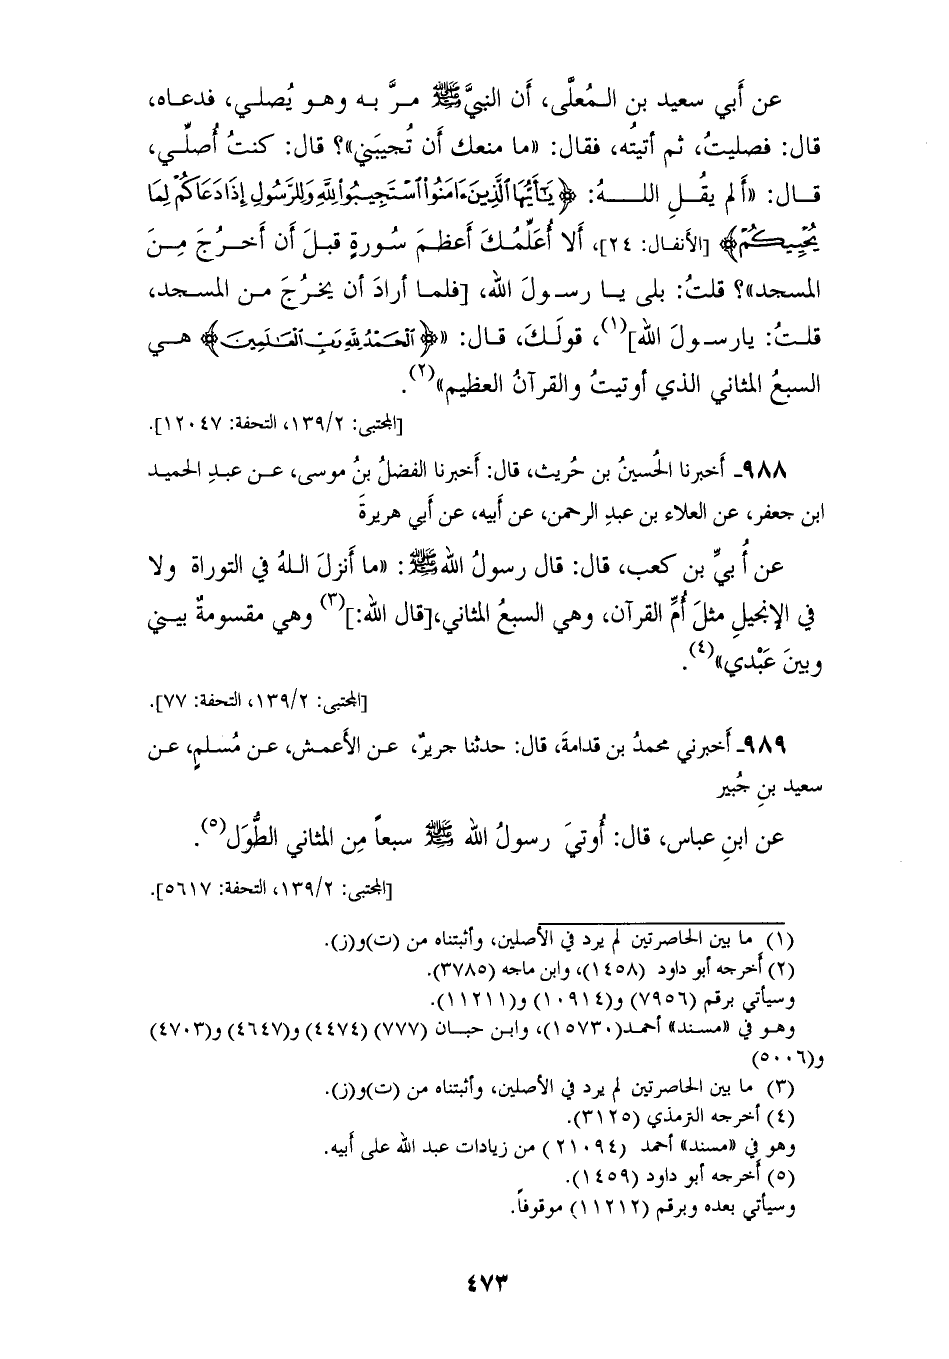 عن أَبي سعيد بن المُعلَّى، أَن النبيَّ ﷺ مرَّ به وهو يُصلي، فدعاه،
قال: فصليتُ، ثم أتيتُه، فقال: «ما منعك أن تُجيبَني»؟ قال: كنتُ أُصلِّي،
قال: «أَلم يقُلِ اللهُ: ﴿يَٰٓأَيُّهَا ٱلَّذِينَ ءَامَنُوا۟ ٱسْتَجِيبُوا۟ لِلَّهِ وَلِلرَّسُولِ إِذَا دَعَاكُمْ لِمَا
يُحْيِيكُمْ﴾ [الأنفال: ٢٤]، أَلا أُعَلِّمُكَ أَعظمَ سُورةٍ قبلَ أن أَخرُجَ مِنَ
المسجد»؟ قلتُ: بلى يا رسولَ الله، [فلما أرادَ أن يخرُجَ من المسجد،
قلتُ: يارسولَ الله](١)، قولَكَ، قال: «﴿ٱلْحَمْدُ لِلَّهِ رَبِّ ٱلْعَٰلَمِينَ﴾ هي
السبعُ المثاني الذي أوتيتُ والقرآنُ العظيم»(٢).
[المجتبى: ١٣٩/٢، التحفة: ١٢٠٤٧].
٩٨٨ـ أَخبرنا الحُسينُ بن حُريث، قال: أَخبرنا الفضلُ بنُ موسى، عن عبدِ الحميد
ابن جعفر، عن العلاء بن عبدِ الرحمن، عن أَبيه، عن أَبي هريرةَ
عن أُبيِّ بن كعب، قال: قال رسولُ الله ﷺ: «ما أَنزلَ اللهُ في التوراة ولا
في الإنجيلِ مثلَ أُمِّ القرآن، وهي السبعُ المثاني،[قال الله:](٣) وهي مقسومةٌ بيني
وبينَ عَبْدي»(٤).
[المجتبى: ١٣٩/٢، التحفة: ٧٧].
٩٨٩ـ أَخبرني محمدُ بن قدامةَ، قال: حدثنا جريرٌ، عن الأَعمش، عن مُسلمٍ، عن
سعيد بنِ جُبير
عن ابنِ عباس، قال: أُوتيَ رسولُ الله ﷺ سبعاً مِن المثاني الطُّوَل(٥).
[المجتبى: ١٣٩/٢، التحفة: ٥٦١٧].
(١) ما بين الحاصرتين لم يرد في الأصلين، وأثبتناه من (ت)و(ز).
(٢) أخرجه أبو داود (١٤٥٨)، وابن ماجه (٣٧٨٥).
وسيأتي برقم (٧٩٥٦) و(١٠٩١٤) و(١١٢١١).
وهو في «مسند» أحمد(١٥٧٣٠)، وابن حبان (٧٧٧) (٤٤٧٤) و(٤٦٤٧) و(٤٧٠٣)
و(٥٠٠٦)
(٣) ما بين الحاصرتين لم يرد في الأصلين، وأثبتناه من (ت)و(ز).
(٤) أخرجه الترمذي (٣١٢٥).
وهو في «مسند» أحمد (٢١٠٩٤) من زيادات عبد الله على أبيه.
(٥) أخرجه أبو داود (١٤٥٩).
وسيأتي بعده وبرقم (١١٢١٢) موقوفاً.
٤٧٣